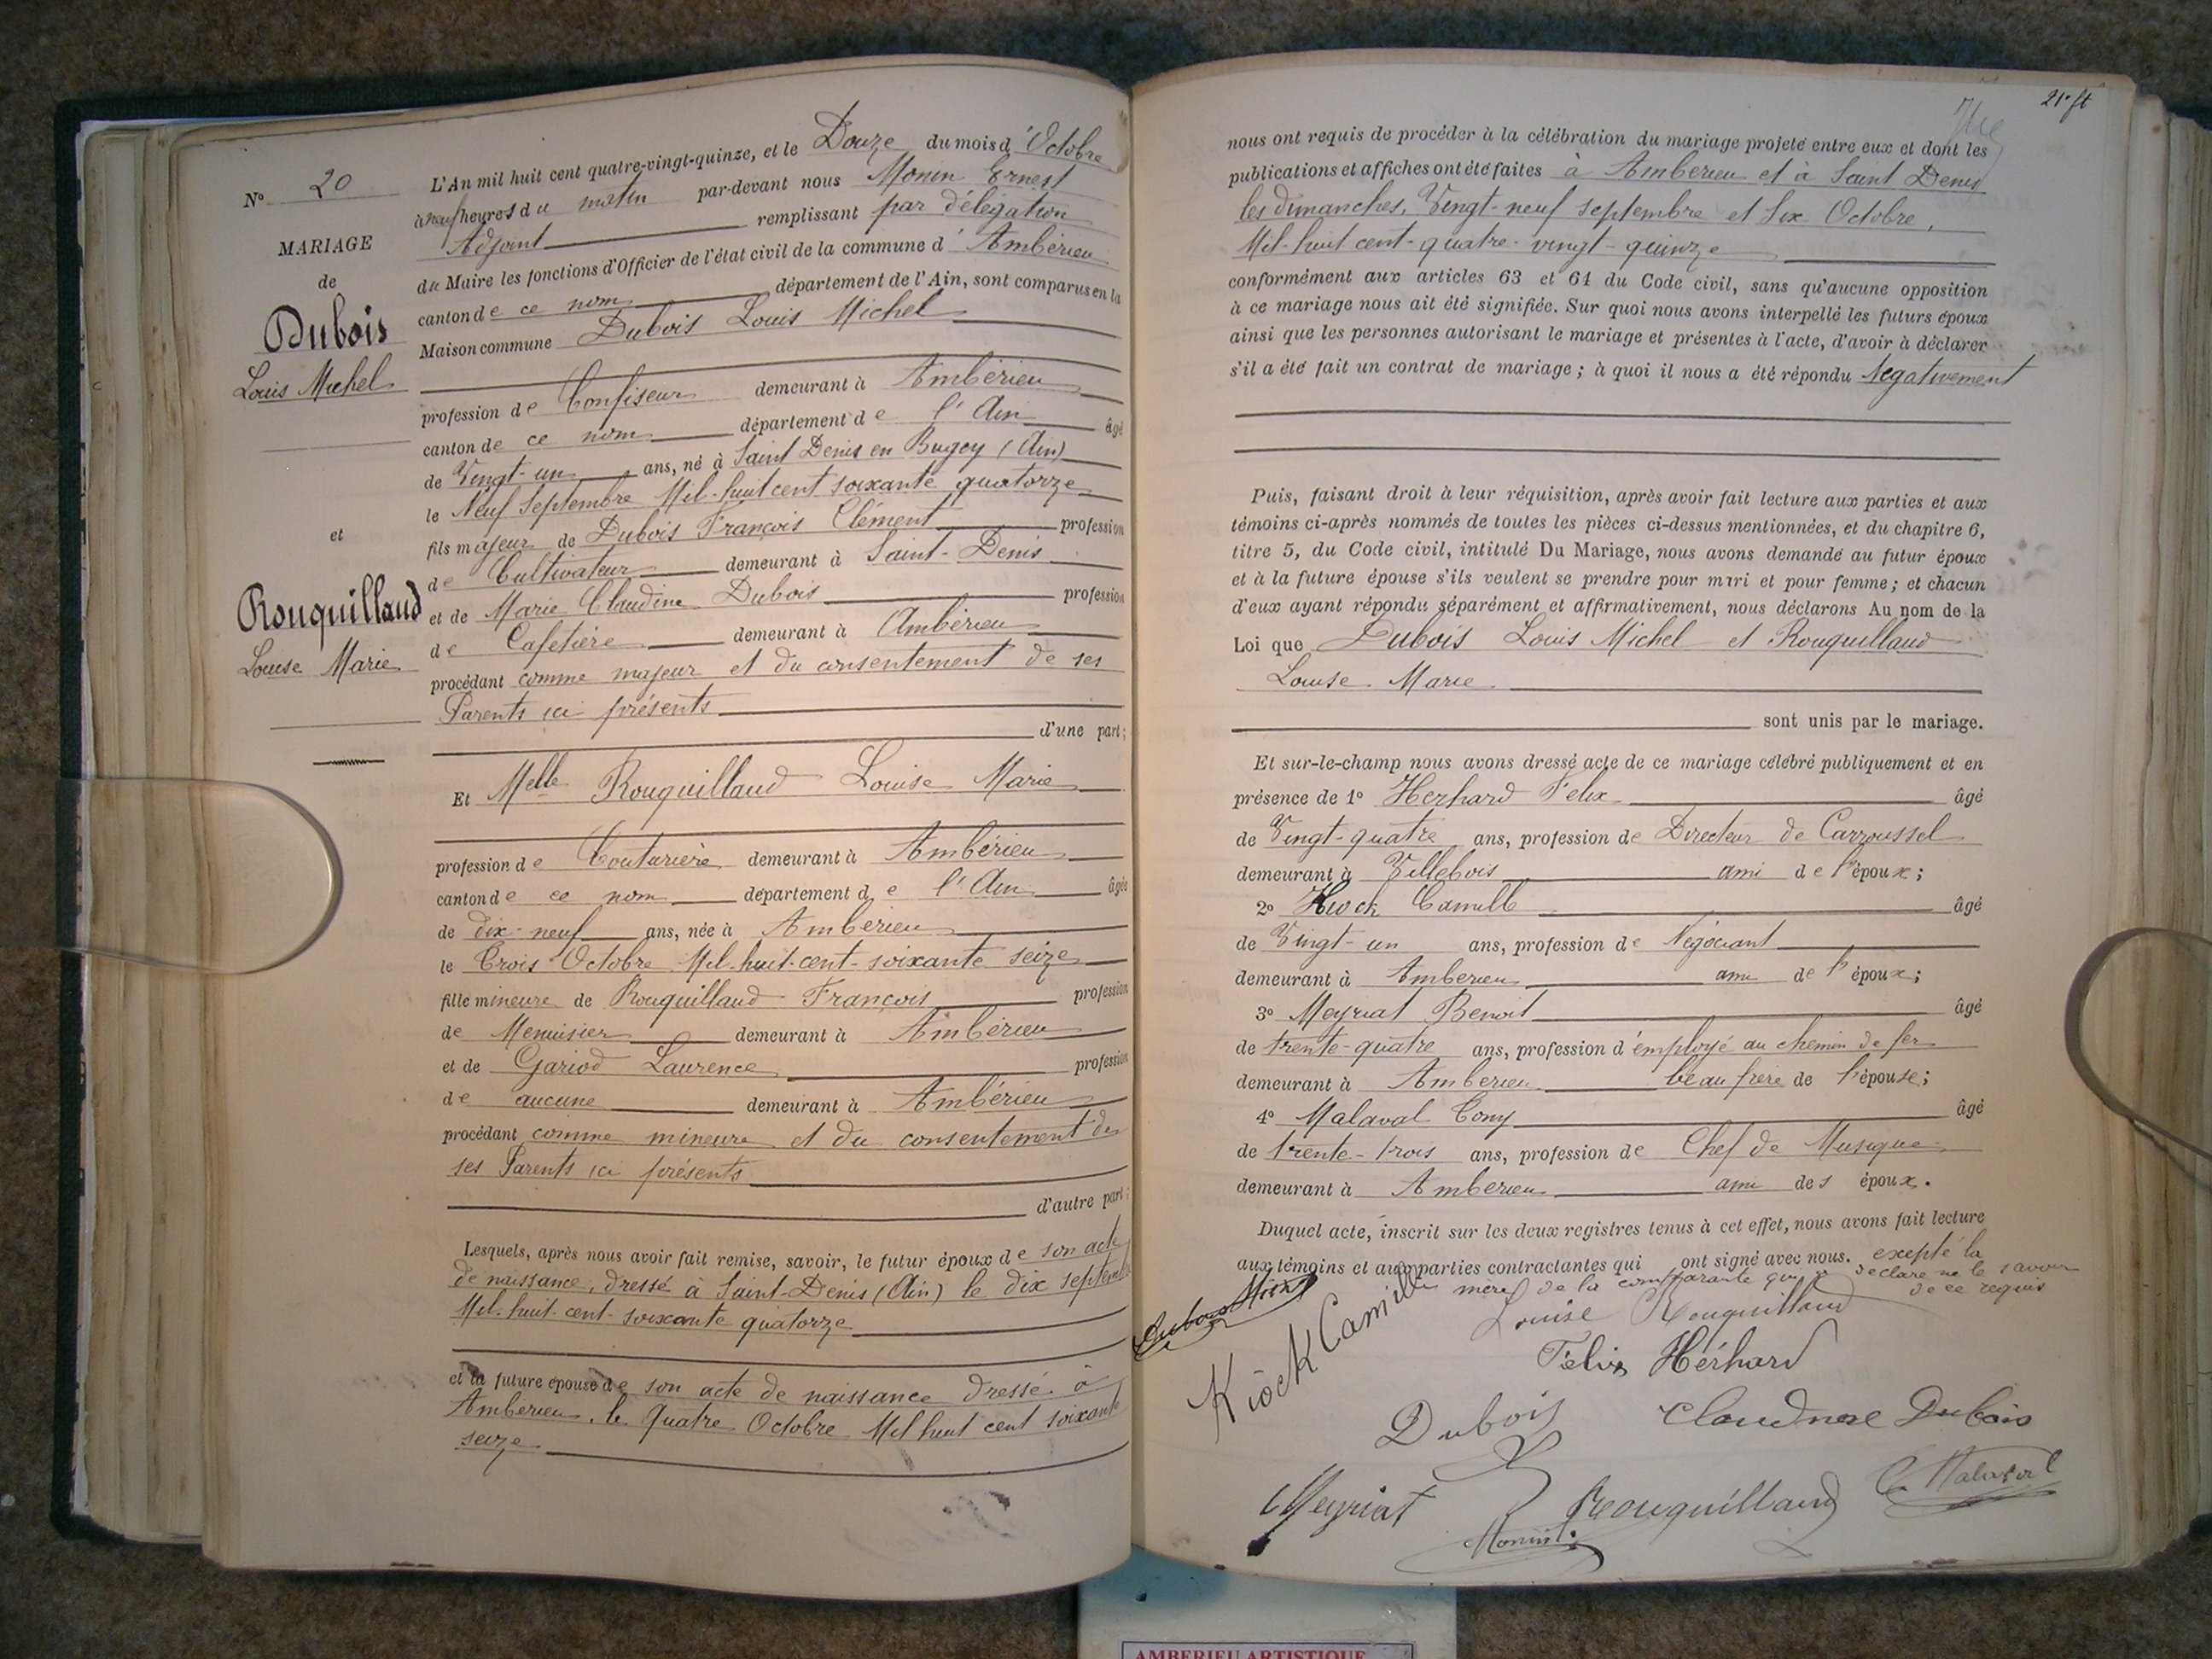 N° 20
MARIAGE
de
Dubois
Louis Michel
et
Rouquilland
Louise Marie
L'An mil huit cent quatre-vingt-quinze, et le Douze du mois d'Octobre
à neuf heures du matin par-devant nous Monin Ernest
Adjoint remplissant par délégation
du Maire les fonctions d'Officier de l'état civil de la commune d'Ambérieu
canton de ce nom département de l'Ain, sont comparus en la
Maison commune Dubois Louis Michel
profession de Confiseur demeurant à Ambérieu
canton de ce nom département de l'Ain âgé
de Vingt-un ans, né à Saint Denis en Bugey (Ain)
le Neuf Septembre Mil-huit cent soixante quatorze
fils majeur de Dubois François Clément profession
de Cultivateur demeurant à Saint-Denis
et de Marie Claudine Dubois profession
de Cafetière demeurant à Ambérieu
procédant comme majeur et du consentement de ses
Parents ici présents
d'une part;
Et Melle Rouquilland Louise Marie
profession de Couturière demeurant à Ambérieu
canton de ce nom département de l'Ain âgée
de dix-neuf ans, née à Ambérieu
le Trois Octobre Mil-huit-cent-soixante seize
fille mineure de Rouquilland François profession
de Menuisier demeurant à Ambérieu
et de Gariod Laurence profession
de aucune demeurant à Ambérieu
procédant comme mineure et du consentement de
ses Parents ici présents
d'autre part;
Lesquels, après nous avoir fait remise, savoir, le futur époux de son acte
de naissance, dressé à Saint-Denis (Ain) le dix septembre
Mil-huit-cent-soixante quatorze
et la future épouse de son acte de naissance dressé à
Ambérieu, le Quatre Octobre Mil huit cent soixante
seize
21e ft
nous ont requis de procéder à la célébration du mariage projeté entre eux et dont les
publications et affiches ont été faites à Ambérieu et à Saint Denis
les dimanches, Vingt-neuf septembre et Six Octobre,
Mil-huit cent-quatre-vingt-quinze
conformément aux articles 63 et 64 du Code civil, sans qu'aucune opposition
à ce mariage nous ait été signifiée. Sur quoi nous avons interpellé les futurs époux
ainsi que les personnes autorisant le mariage et présentes à l'acte, d'avoir à déclarer
s'il a été fait un contrat de mariage; à quoi il nous a été répondu Négativement
Puis, faisant droit à leur réquisition, après avoir fait lecture aux parties et aux
témoins ci-après nommés de toutes les pièces ci-dessus mentionnées, et du chapitre 6,
titre 5, du Code civil, intitulé Du Mariage, nous avons demandé au futur époux
et à la future épouse s'ils veulent se prendre pour mari et pour femme; et chacun
d'eux ayant répondu séparément et affirmativement, nous déclarons Au nom de la
Loi que Dubois Louis Michel et Rouquilland
Louise Marie
sont unis par le mariage.
Et sur-le-champ nous avons dressé acte de ce mariage célébré publiquement et en
présence de 1° Herhard Félix âgé
de Vingt-quatre ans, profession de Directeur de Carroussel
demeurant à Villebois ami de l'époux;
2° Kiock Camille âgé
de Vingt-un ans, profession de Négociant
demeurant à Ambérieu ami de l'époux;
3° Meyriat Benoit âgé
de trente-quatre ans, profession d'employé au chemin de fer
demeurant à Ambérieu beau frère de l'épouse;
4° Malaval Tony âgé
de trente-trois ans, profession de Chef de Musique
demeurant à Ambérieu ami des époux.
Duquel acte, inscrit sur les deux registres tenus à cet effet, nous avons fait lecture
aux témoins et aux parties contractantes qui ont signé avec nous. excepté la
mère de la comparante qui a déclaré ne le savoir
de ce requis
Louise Rouquilland
Kiöck Camille
Félix Hérhard
Dubois
Claudine Dubois
Meyriat
Rouquilland
Malaval
Monin
AMBERIEU ARTISTIQUE